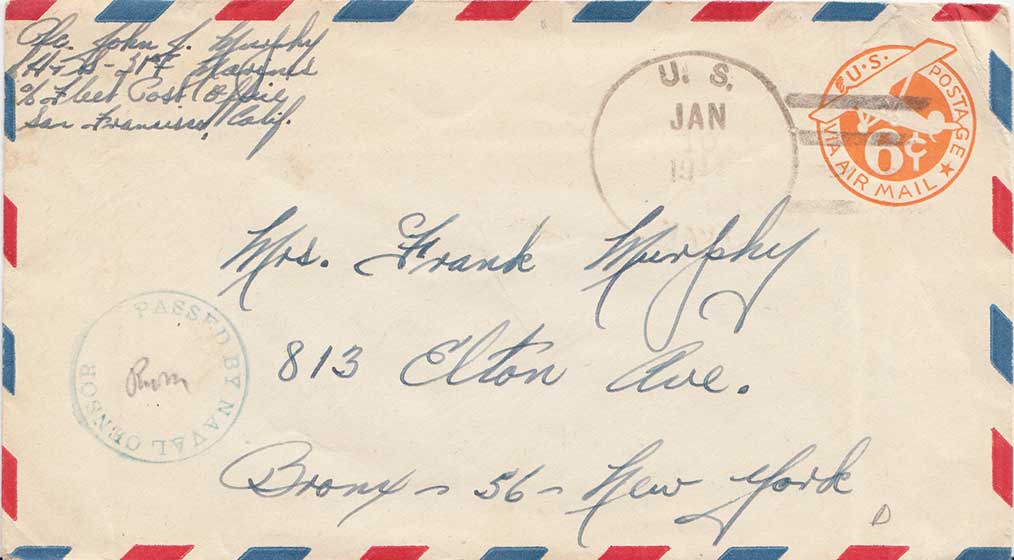 Pfc. John J. Murphy
H+S - 31st Marines
% Fleet Post Office
San Francisco, Calif.
U. S.
JAN
19
U.S. POSTAGE
6¢
VIA AIR MAIL
Mrs. Frank Murphy
813 Elton Ave.
Bronx - 56 - New York
PASSED BY NAVAL CENSOR
D